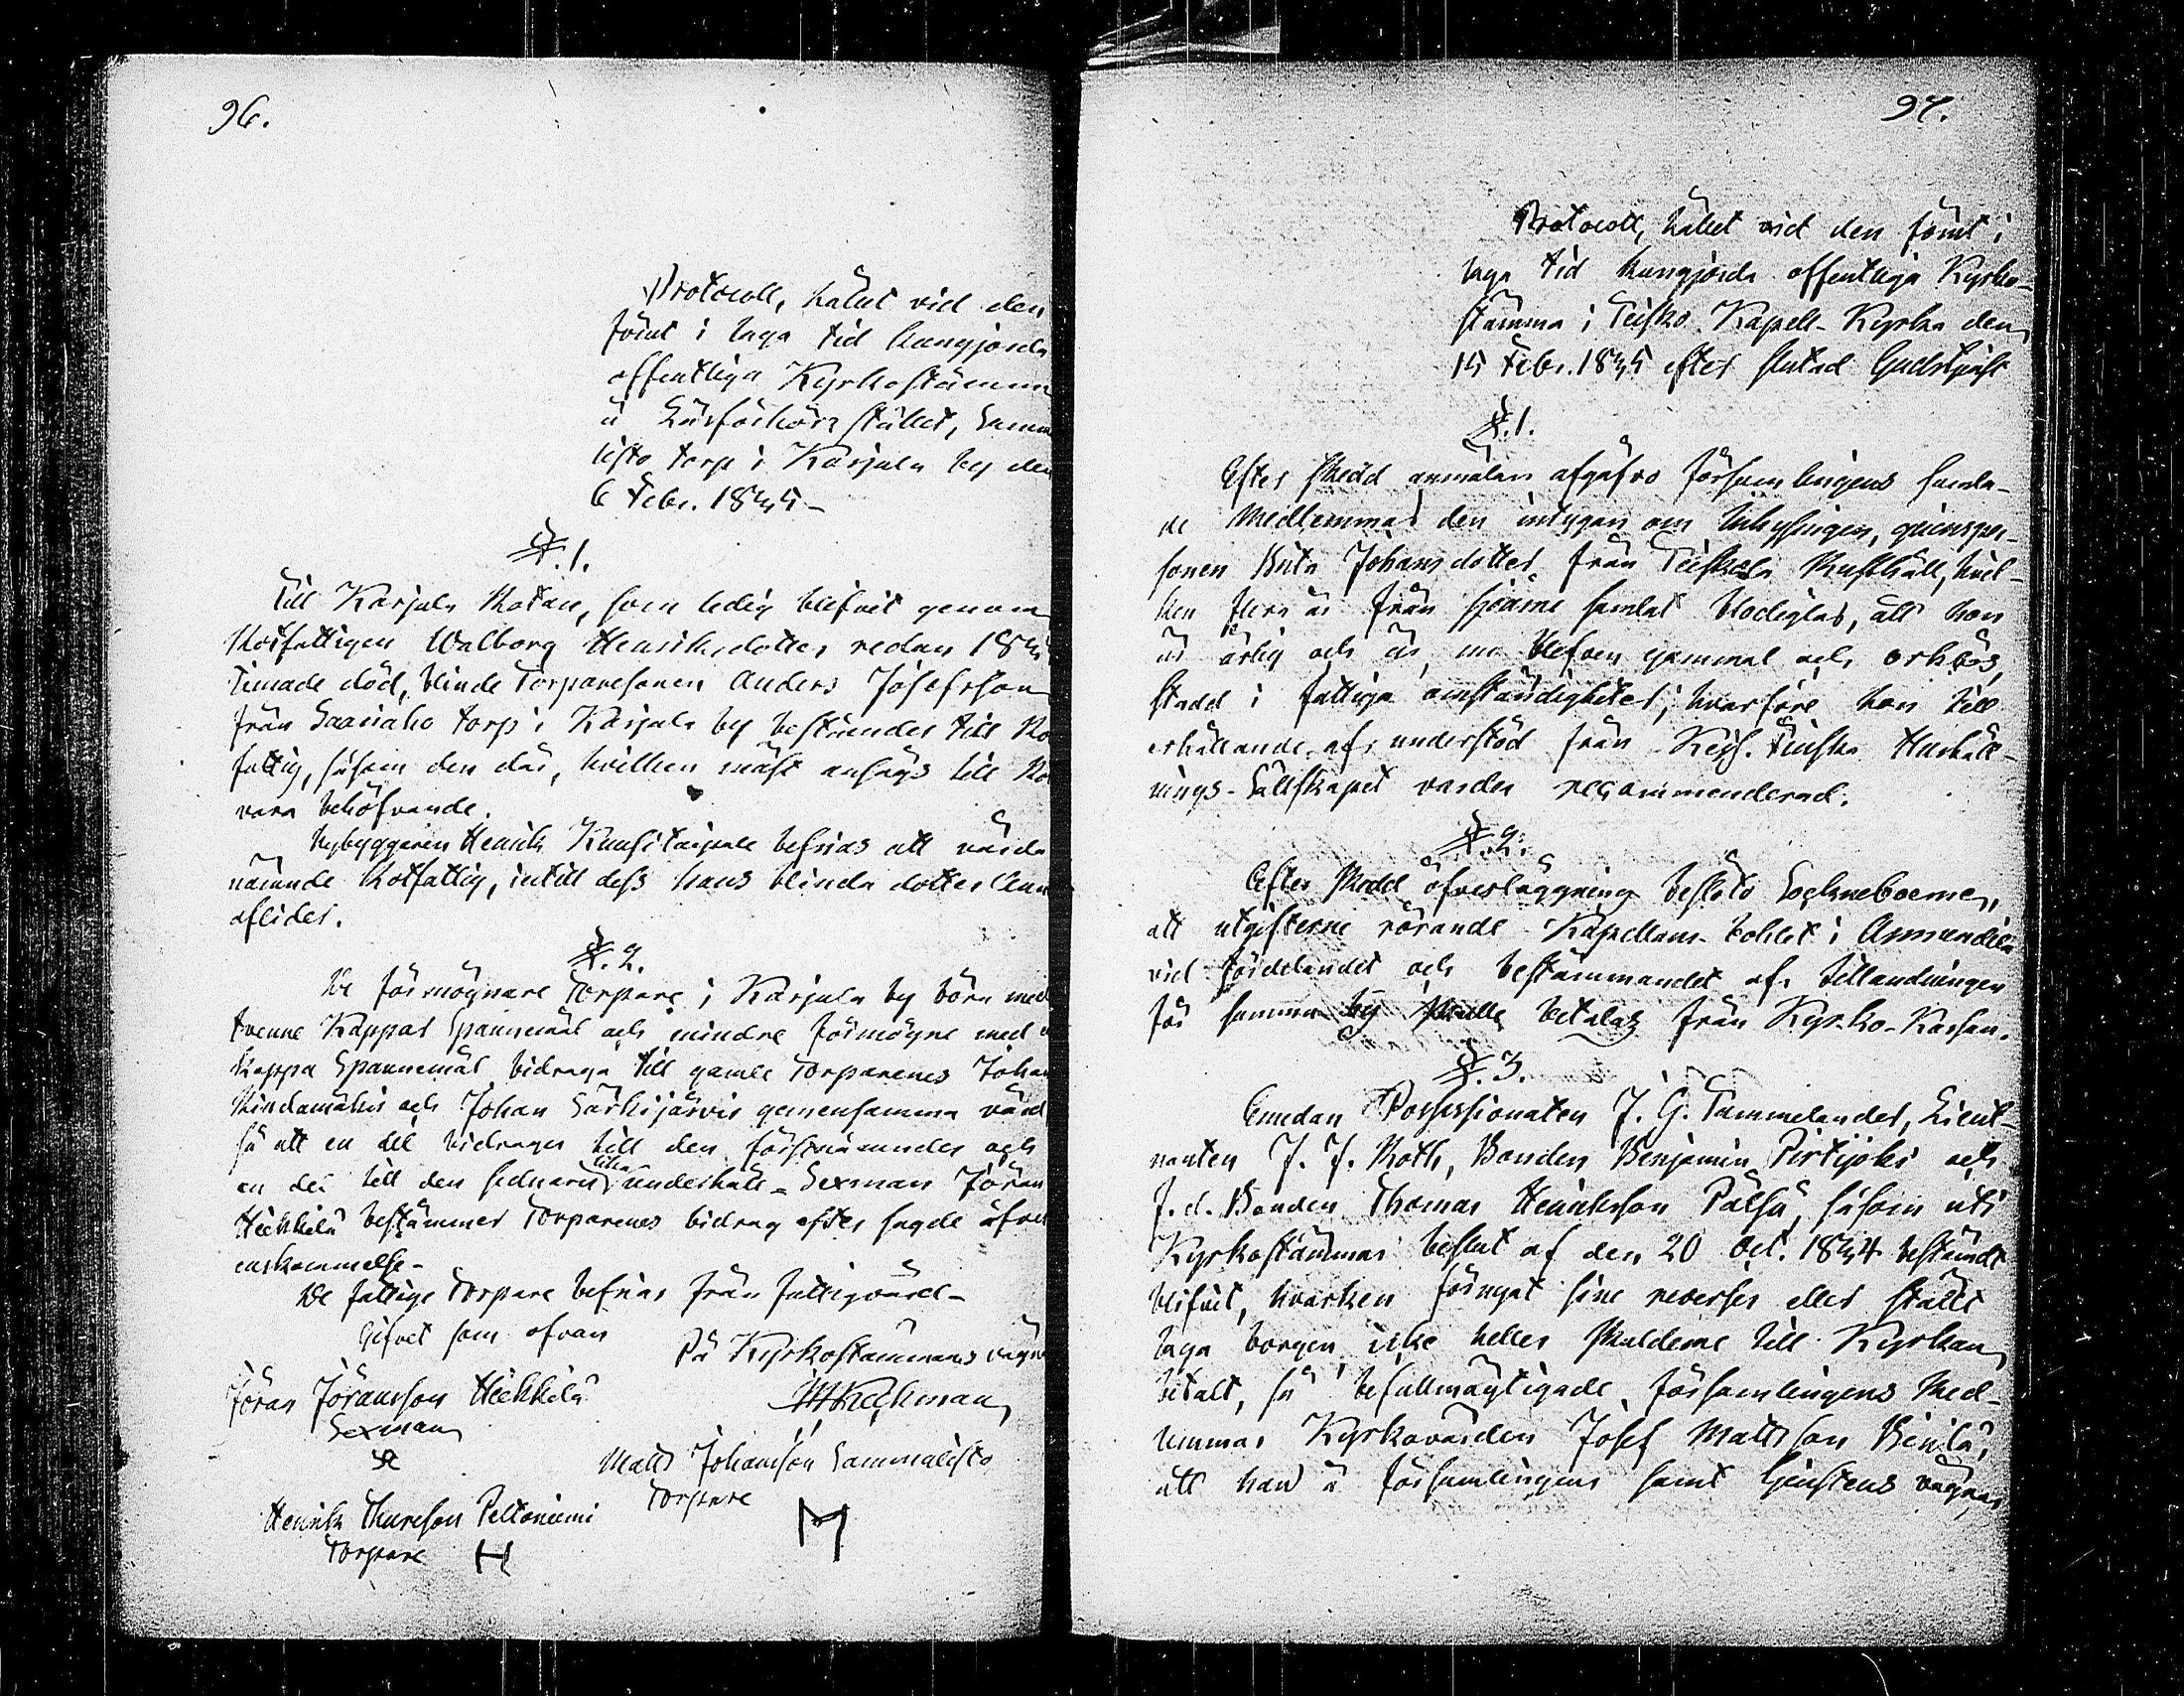 96.
Protocoll, hållet vid den
förut i laga tid kungjorda
offentliga Kyrkostämma
å Läsförhörs stället, Samma
listo torp i Karjula by den
6 Febr. 1845 –
§. 1.
Till Karjula Rotan, som ledig blifvit genom
Rotfattigen Walborg Henriksdotters redan
timade död, blinde Torparesonen Anders Josefsson
från Saaniaho torp i Karjula by bestämdes till Ro
fattig, såsom den der, hvilken mäst ansågs till Ro
vara behöfvande.
Nybyggaren Henrik Kuusitaipale befrias att vårda
nämnde Rotfattig, intill dess hans blinda dotter Ann
aflider.
§. 2.
De förmögnare Torpare i Karjula by böra med
tvenne Kappar Spannemål och mindre förmögne med
Kappa Spannemål bidraga till gamle Torparenes Johan
Rindamäkis och Johan Särkijärvis gemensamma vård
så att en del bidrages till den förstnämndes och
en del till den sednares underhåll – Sexman Jöran
Heikkilä bestämmer Torparenes bidrag efter sagde öfver
enskommelse –
De fattige Torpare befrias från fattigvård –
Gifvet som ofvan
På Kyrkostämmans vägnar
Jöran Jöransson Heikkilä
Sexman
Matts Johansson Sammalisto
Torpare
M
Henrik Thureson Peltoniemi
Torpare H
97.
Protocoll, hållet vid den förut i
laga tid kungjorda offentliga Kyrko-
stämma i Teisko Kapell-Kyrka den
15 Febr. 1845 efter slutad Gudstjenst
§. 1.
Efter skedd anmälan afgåfvo Församlingens samla-
de Medlemmar den intygan om Inhysingen, qvinsper-
sonen Brita Johansdotter från Teiskola Rusthåll, hvil-
ken flera år från samlat blodiglar, att hon
är ärlig och är, nu blefven gammal och orkeslös,
stadd i fattiga omständigheter; hvarföre hon till
erhållande af understöd från Kejs. Finska Hushåll-
nings-Sällskapet varder recommenderad.
§. 2.
Efter skedd öfverläggning beslöto Sockneboerne,
att utgifterne rörande Kapellans-bohlet i Asmundila
vid fördelandet och bestämmandet af tillandningen
för samma by skulle betalas från Kyrko-Kassan.
§. 3.
Emedan Possessionaten J. G. Tammelander, Lieut-
nanten J. J. Roth, Bonden Benjamin Pirtijoki och
f.d. Bonden Thomas Henriksson Pälsä, såsom uti
Kyrkostämmas beslut af den 20 Oct. 1844 bestämdt
blifvit, hvarken förnyat sine reverser eller ställt
laga borgen, icke heller skulderne till Kyrkan
betalt, så befullmäktigade Församlingens Med-
lemmar Kyrkovärden Josef Mattsson
att han å församlingens samt Gjenstens vägnar